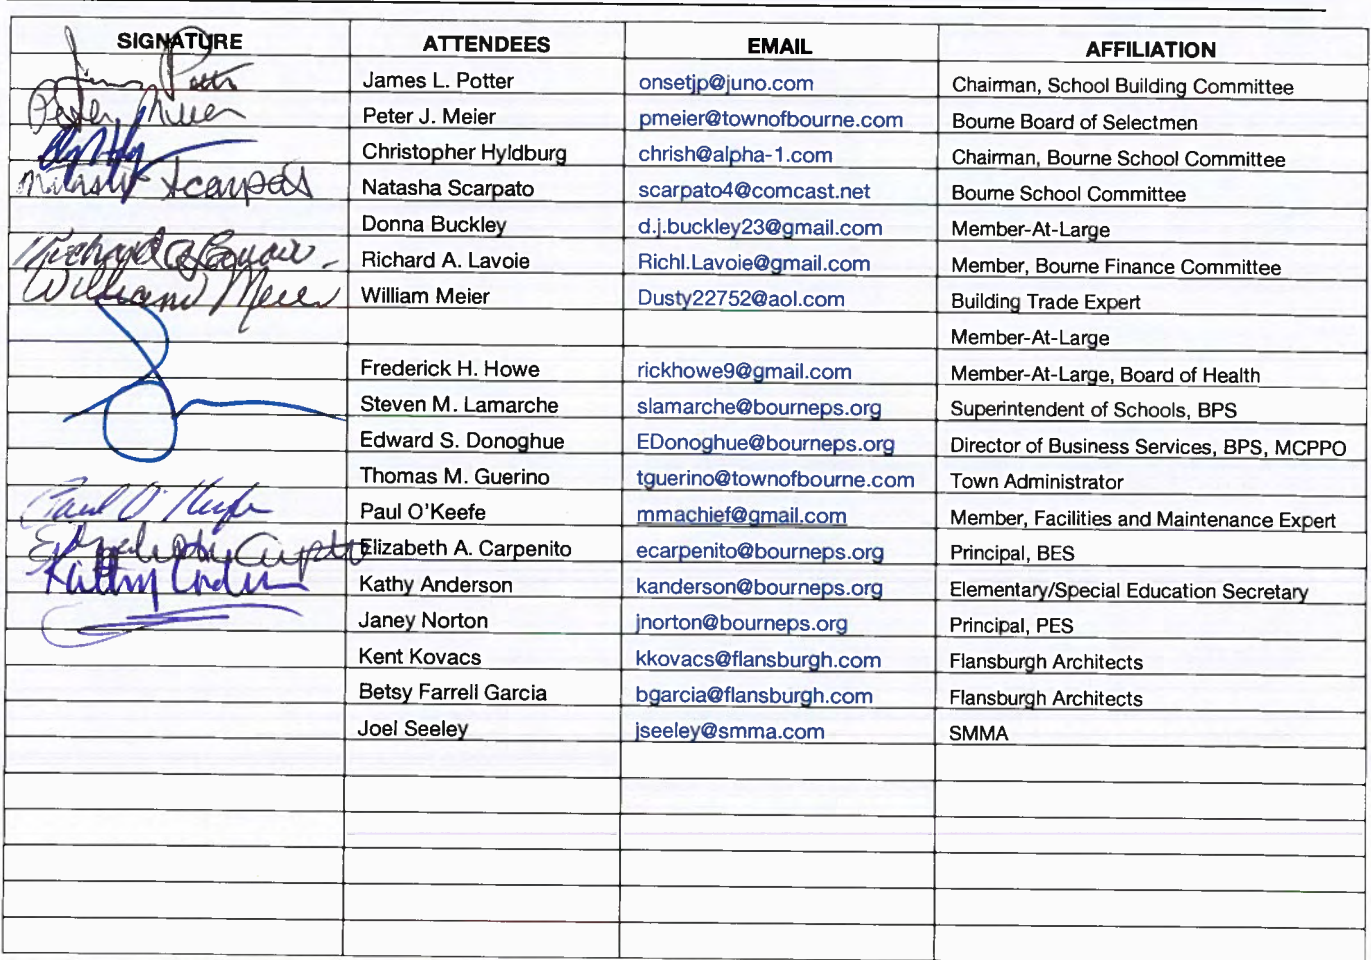 SIGNATURE ATTENDEES EMAIL AFFILIATION
Jim Potter James L. Potter onsetjp@juno.com Chairman, School Building Committee
Peter Meier Peter J. Meier pmeier@townofbourne.com Bourne Board of Selectmen
Christopher Hyldburg chrish@alpha-1.com Chairman, Bourne School Committee
Natasha Scarpato Natasha Scarpato scarpato4@comcast.net Bourne School Committee
Donna Buckley d.j.buckley23@gmail.com Member-At-Large
Richard A Lavoie Richard A. Lavoie Richl.Lavoie@gmail.com Member, Bourne Finance Committee
William Meier William Meier Dusty22752@aol.com Building Trade Expert
Member-At-Large
Frederick H. Howe rickhowe9@gmail.com Member-At-Large, Board of Health
Steven M. Lamarche slamarche@bourneps.org Superintendent of Schools, BPS
Edward S. Donoghue EDonoghue@bourneps.org Director of Business Services, BPS, MCPPO
Thomas M. Guerino tguerino@townofbourne.com Town Administrator
Paul O'Keefe Paul O'Keefe mmachief@gmail.com Member, Facilities and Maintenance Expert
Elizabeth A. Carpenito ecarpenito@bourneps.org Principal, BES
Kathy Anderson Kathy Anderson kanderson@bourneps.org Elementary/Special Education Secretary
Janey Norton jnorton@bourneps.org Principal, PES
Kent Kovacs kkovacs@flansburgh.com Flansburgh Architects
Betsy Farrell Garcia bgarcia@flansburgh.com Flansburgh Architects
Joel Seeley jseeley@smma.com SMMA